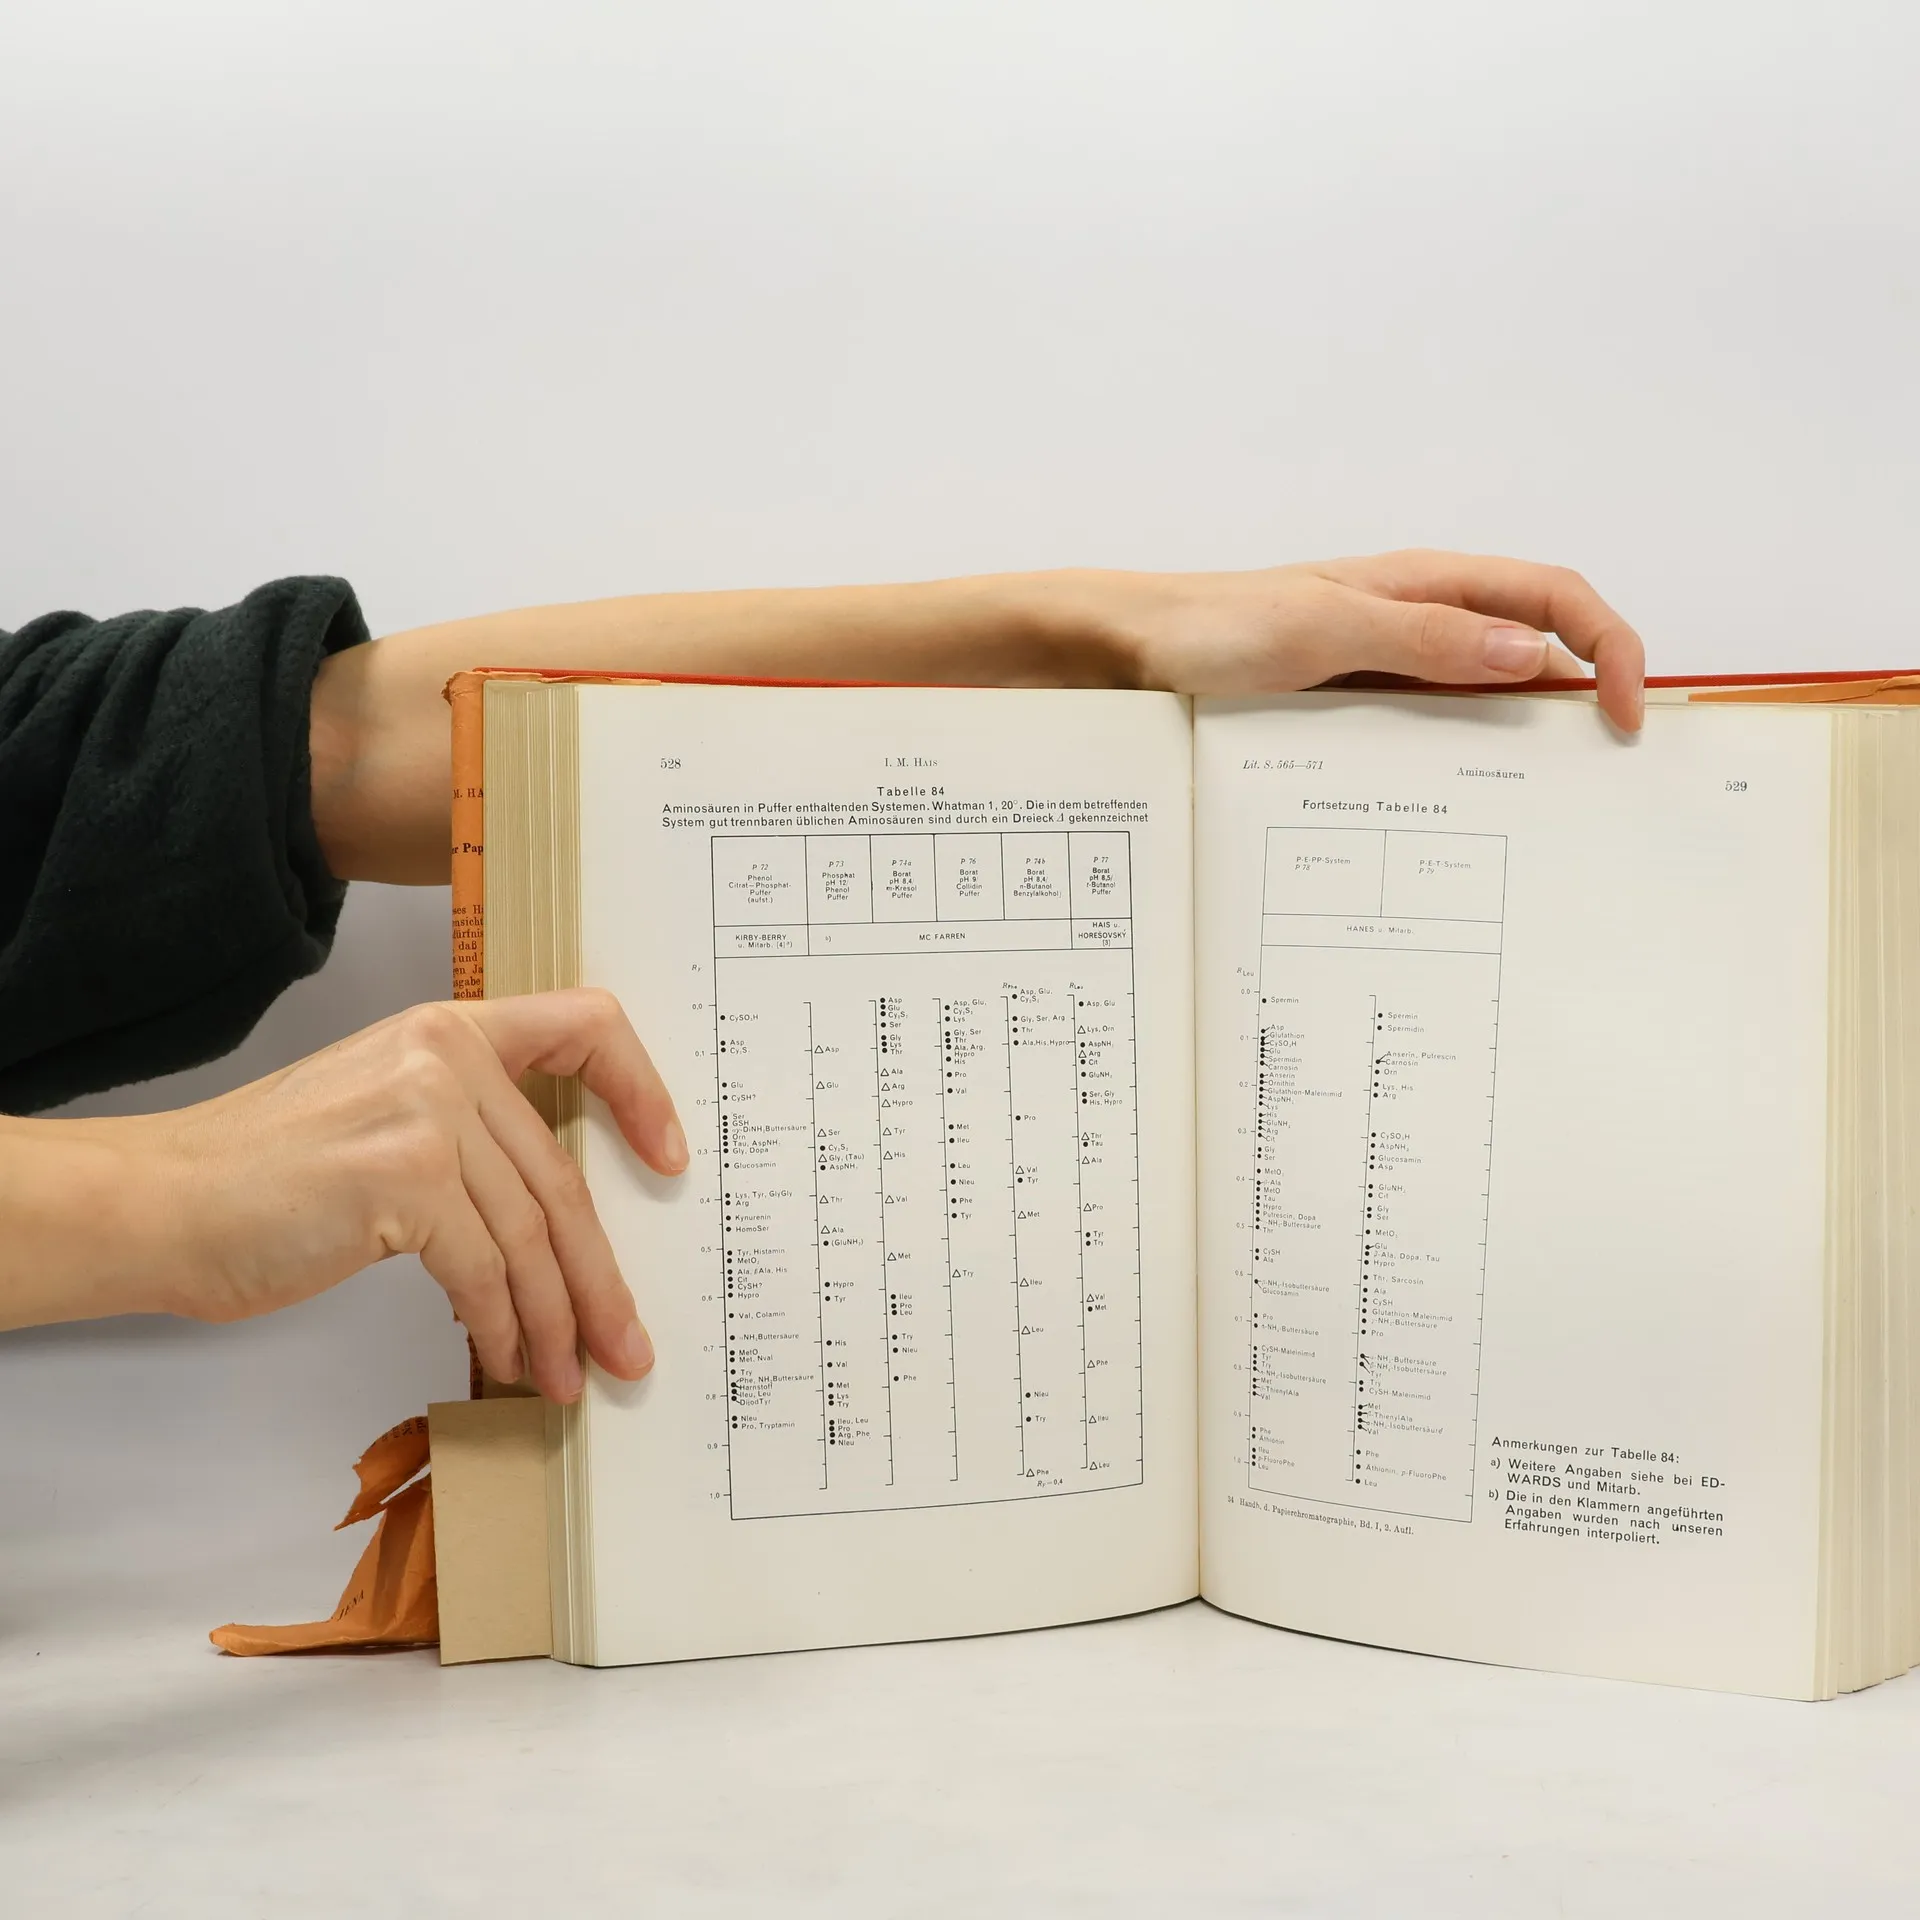 528
I. M. HAIS
Tabelle 84
Aminosäuren in Puffer enthaltenden Systemen. Whatman 1, 20°. Die in dem betreffenden
System gut trennbaren üblichen Aminosäuren sind durch ein Dreieck Δ gekennzeichnet
P 72
Phenol
Citrat-Phosphat-
Puffer
(aufst.)
P 73
Phosphat
pH 12/
Phenol
Puffer
P 74a
Borat
pH 8,4/
m-Kresol
Puffer
P 76
Borat
pH 9/
Collidin
Puffer
P 74b
Borat
pH 8,4/
n-Butanol
Benzylalkohol
P 77
Borat
pH 8,5/
t-Butanol
Puffer
KIRBY-BERRY
u. Mitarb. [4]
MC FARREN
HAIS u.
HOREŠOVSKÝ
[3]
0,0
0,1
0,2
0,3
0,4
0,5
0,6
0,7
0,8
0,9
1,0
CySO₃H
Asp
Glu
CySH?
Ser
GSH
Orn
Tau, AspNH₂
Gly, Dopa
Glucosamin
Lys, Tyr, GlyGly
Arg
Kynurenin
HomoSer
Tyr, Histamin
MetO₂
Ala, βAla, His
Cit
CySH?
Hypro
Val, Colamin
MetO
Met, Nval
Try
Phe, NH₂Buttersäure
Harnstoff
Ileu, Leu
DijodTyr
Nleu
Pro, Tryptamin
Asp
Glu
Ser
Cy₂S₂
Gly, (Tau)
AspNH₂
Thr
Ala
(GluNH₂)
Hypro
Tyr
His
Val
Met
Lys
Try
Ileu, Leu
Pro
Arg, Phe
Nleu
Asp
Glu
Cy₂S₂
Ser
Gly
Lys
Thr
Ala
Arg
Hypro
Tyr
His
Val
Met
Ileu
Pro
Leu
Try
Nleu
Phe
Asp, Glu,
Cy₂S₂
Lys
Gly, Ser
Thr
Ala, Arg,
Hypro
His
Pro
Val
Met
Ileu
Leu
Nleu
Phe
Tyr
Try
Asp, Glu,
Cy₂S₂
Gly, Ser, Arg
Thr
Ala, His, Hypro
Pro
Val
Tyr
Met
Ileu
Leu
Nleu
Try
Phe
Asp, Glu
Lys, Orn
AspNH₂
Arg
Cit
GluNH₂
Ser, Gly
His, Hypro
Thr
Tau
Ala
Pro
Tyr
Try
Val
Met
Phe
Ileu
Leu
Lit. S. 565—571
Aminosäuren
529
Fortsetzung Tabelle 84
P-E-PP-System
P 78
P-E-T-System
P 79
HANES u. Mitarb.
0,0
0,1
0,2
0,3
0,4
0,5
0,6
0,7
0,8
0,9
1,0
Spermin
Asp
Glutathion
CySO₃H
Glu
Spermidin
Carnosin
Anserin
Ornithin
Glutathion-Maleinimid
AspNH₂
Lys
His
GluNH₂
Arg
Cit
Gly
Ser
MetO₂
β-Ala
MetO
Tau
Hypro
Putrescin, Dopa
Thr
CySH
Ala
Glucosamin
Pro
CySH-Maleinimid
Tyr
Try
Met
Val
Phe
Äthionin
Ileu
p-FluoroPhe
Leu
Spermin
Spermidin
Anserin, Putrescin
Carnosin
Orn
Lys, His
Arg
CySO₃H
AspNH₂
Glucosamin
Asp
GluNH₂
Cit
Gly
Ser
MetO₂
Glu
β-Ala, Dopa, Tau
Hypro
Thr, Sarcosin
Ala
CySH
Glutathion-Maleinimid
Pro
Tyr
Try
CySH-Maleinimid
Met
Val
Phe
Äthionin, p-FluoroPhe
Leu
Anmerkungen zur Tabelle 84:
a) Weitere Angaben siehe bei ED-
WARDS und Mitarb.
b) Die in den Klammern angeführten
Angaben wurden nach unseren
Erfahrungen interpoliert.
34 Handb. d. Papierchromatographie, Bd. I, 2. Aufl.
JENA